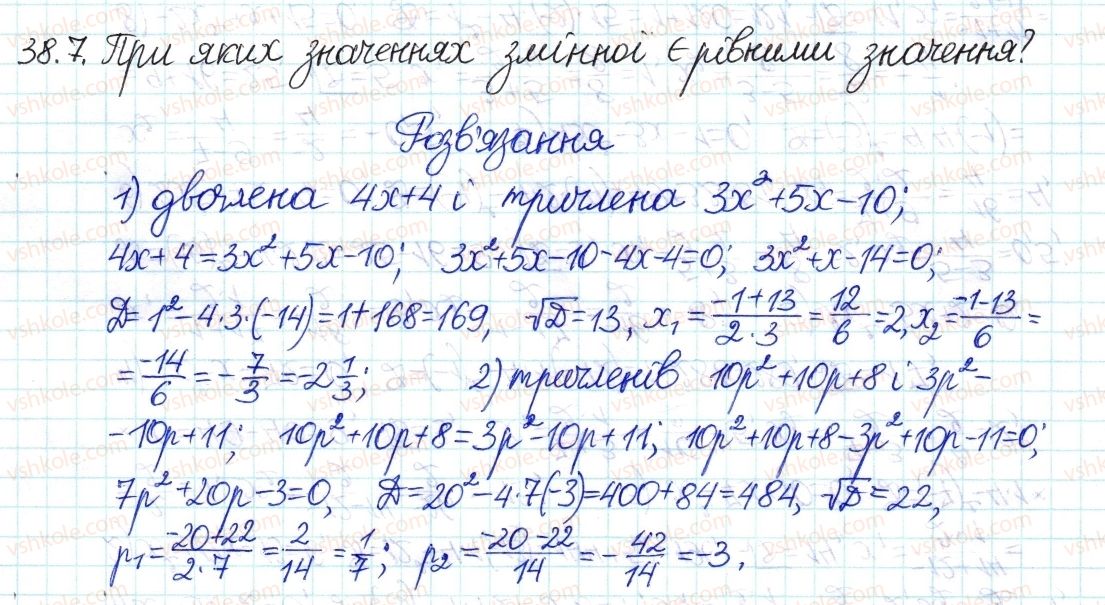 38.7. При яких значеннях змінної є рівними значення?
Розв'язання
1) двочлена 4x+4 і тричлена 3x²+5x-10;
4x+4=3x²+5x-10; 3x²+5x-10-4x-4=0; 3x²+x-14=0;
D=1²-4·3·(-14)=1+168=169, √D=13, x₁=(-1+13)/(2·3)=12/6=2, x₂=(-1-13)/6=
=-14/6=-7/3=-2 1/3; 2) тричленів 10p²+10p+8 і 3p²-
-10p+11; 10p²+10p+8=3p²-10p+11; 10p²+10p+8-3p²+10p-11=0;
7p²+20p-3=0, D=20²-4·7(-3)=400+84=484, √D=22,
p₁=(-20+22)/(2·7)=2/14=1/7; p₂=(-20-22)/14=-42/14=-3.